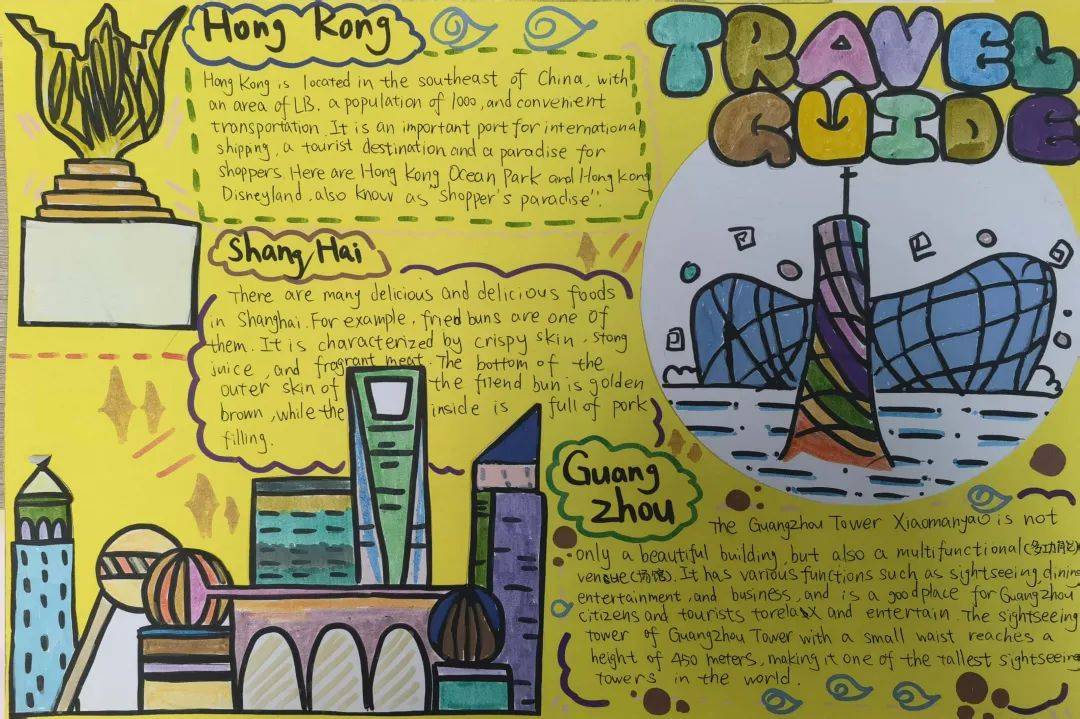 TRAVEL
GUIDE
Hong Kong
Hong Kong is located in the southeast of China, with
an area of LB. a population of 1000, and convenient
transportation. It is an important port for international
shipping, a tourist destination and a paradise for
shoppers. Here are Hong Kong Ocean Park and Hong Kong
Disneyland, also know as "shopper's paradise".
Shang Hai
There are many delicious and delicious foods
in Shanghai. For example, fried buns are one of
them. It is characterized by crispy skin, stong
juice, and fragrant meat. The bottom of the
outer skin of the friend bun is golden
brown, while the inside is full of pork
filling.
Guang
zhou
The Guangzhou Tower Xiaomanyao is not
only a beautiful building, but also a multifunctional (多功能)
venue (场馆). It has various functions such as sightseeing, dining
entertainment, and business, and is a good place for Guangzhou
citizens and tourists to relax and entertain. The sightseeing
tower of Guangzhou Tower with a small waist reaches a
height of 450 meters, making it one of the tallest sightseeing
towers in the world.